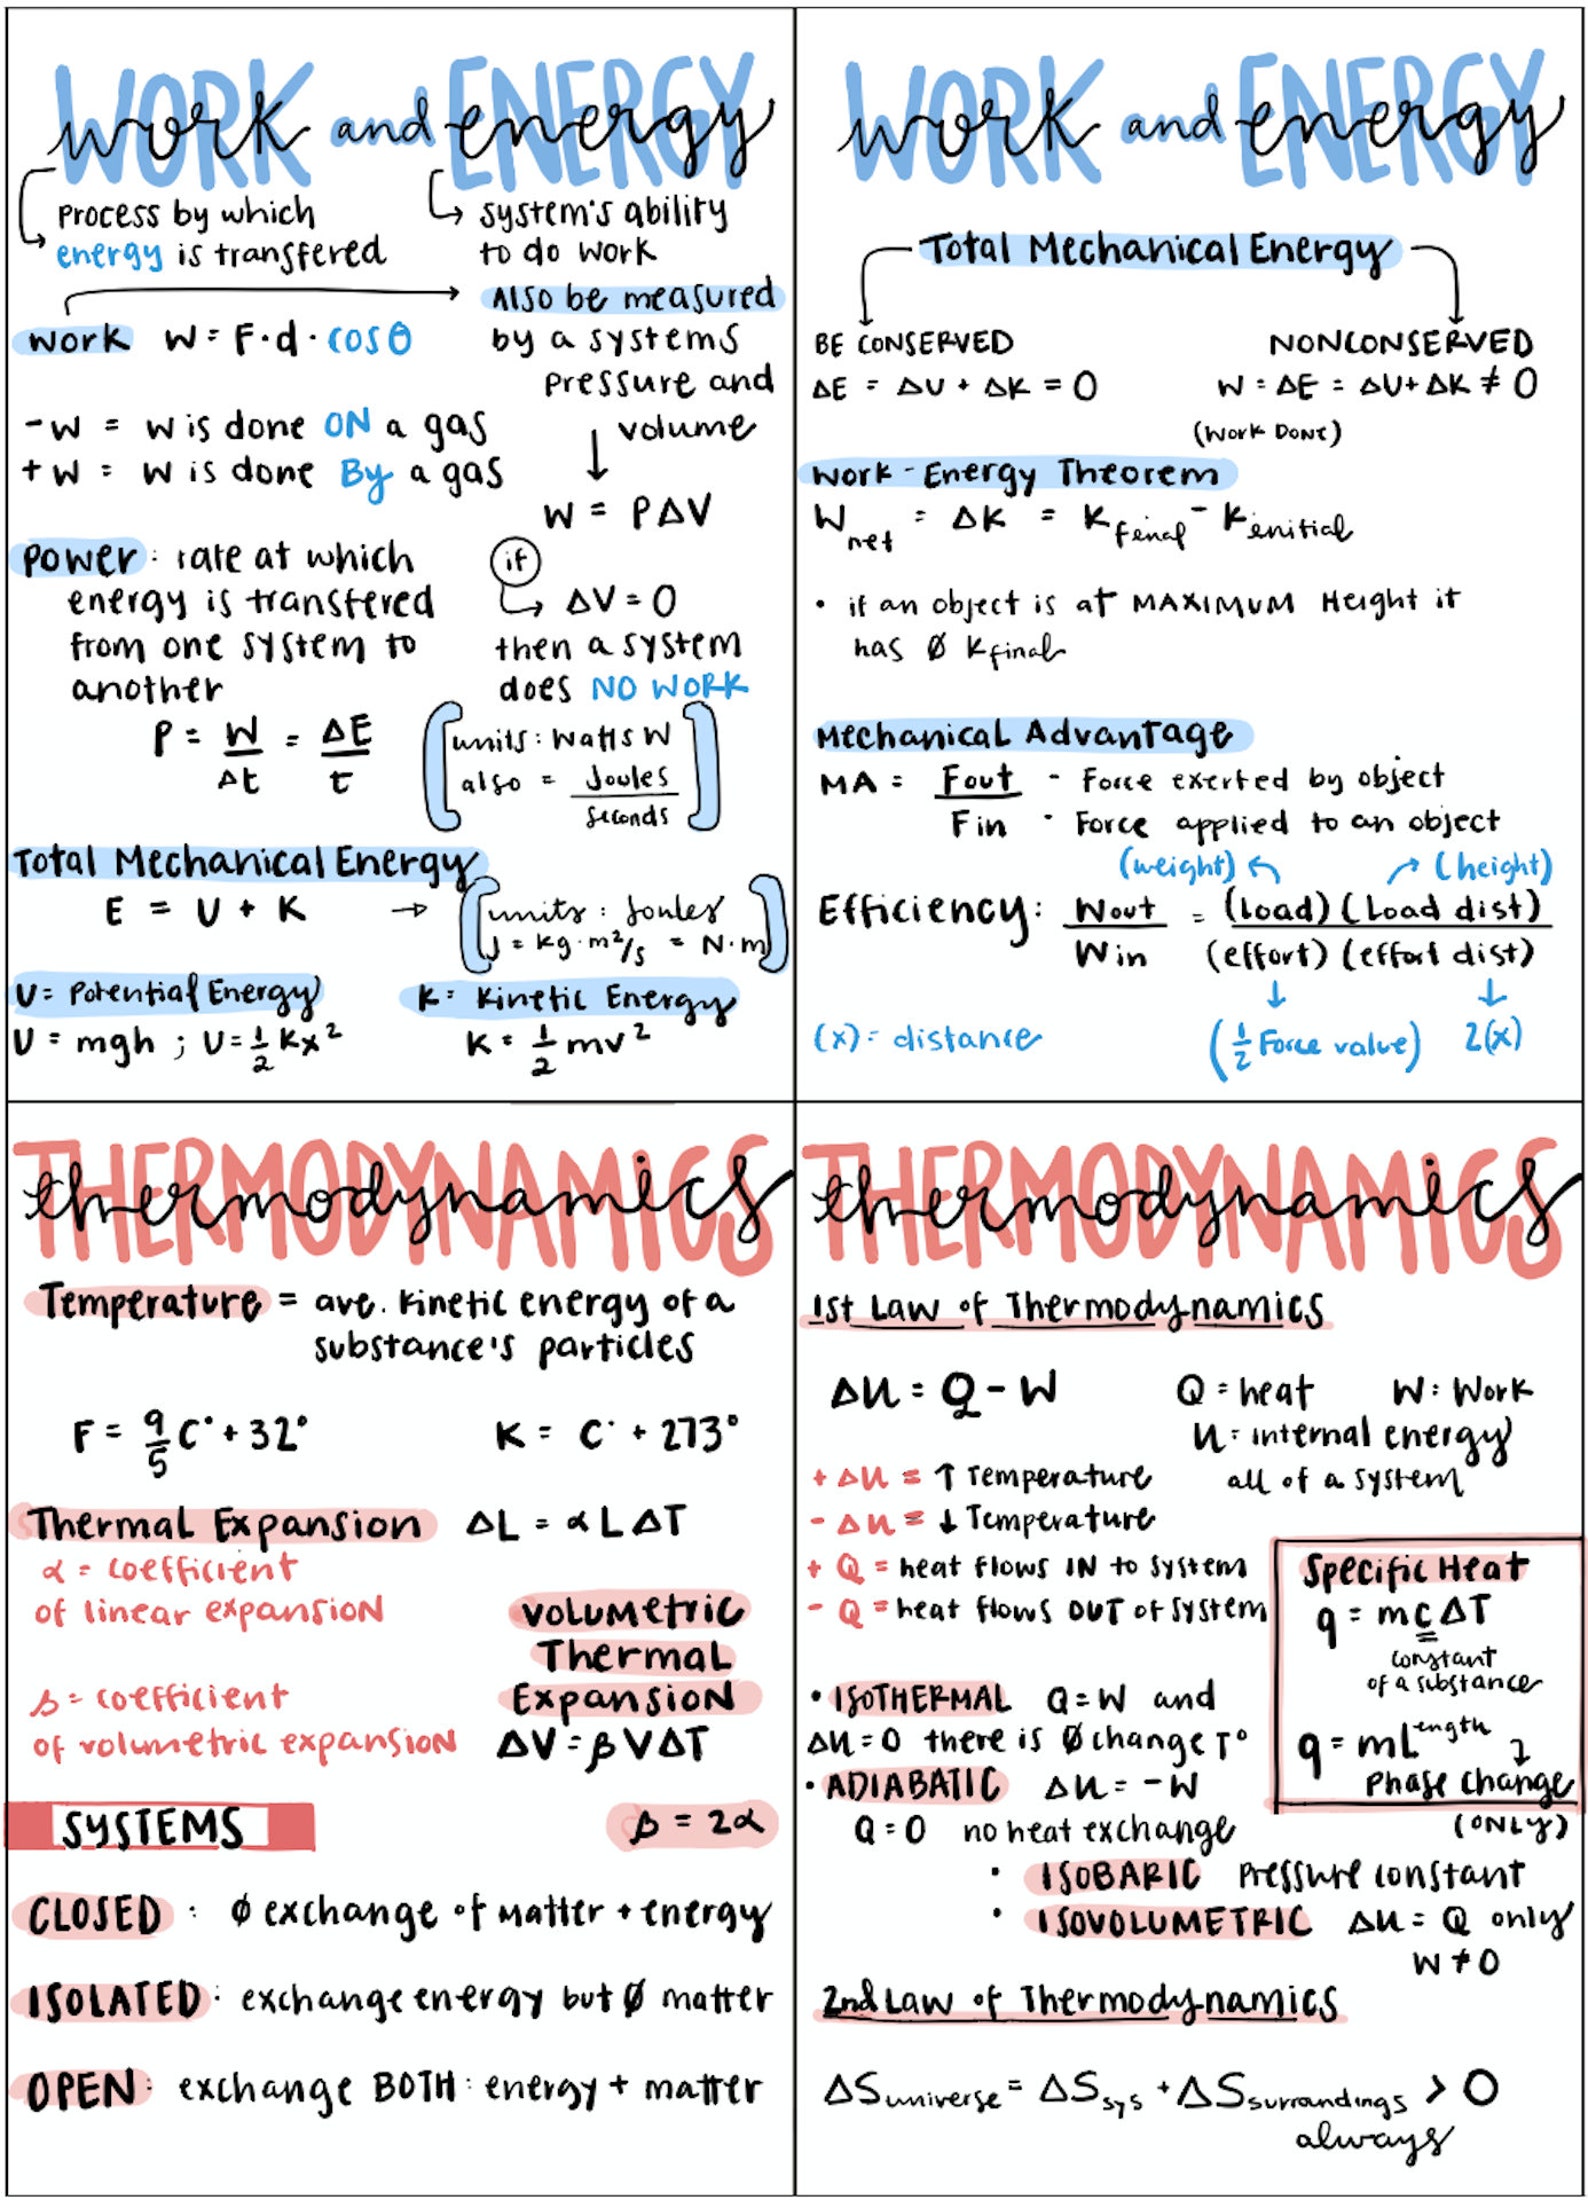 WORK and ENERGY
work energy
Process by which
energy is transfered
system's ability
to do work
Also be measured
by a systems
pressure and
volume
W = PΔV
if
ΔV = 0
then a system
does NO WORK
Work W = F·d·cosθ
-W = W is done ON a gas
+W = W is done By a gas
Power: rate at which
energy is transfered
from one system to
another
P = W/Δt = ΔE/t
units: Watts W
also = Joules/seconds
Total Mechanical Energy
E = U + K →
units: Joules
J = kg·m²/s = N·m
U = Potential Energy
U = mgh ; U = 1/2 Kx²
K = Kinetic Energy
K = 1/2 mv²
WORK and ENERGY
work energy
Total Mechanical Energy
BE CONSERVED
ΔE = ΔU + ΔK = 0
NONCONSERVED
W = ΔE = ΔU + ΔK ≠ 0
(Work Done)
Work-Energy Theorem
Wnet = ΔK = Kfinal - Kinitial
• if an object is at MAXIMUM Height it
has Ø Kfinal
Mechanical Advantage
MA = Fout - Force exerted by object
Fin · Force applied to an object
(weight) (height)
Efficiency: Wout/Win = (Load)(Load dist)/(effort)(effort dist)
(x) = distance (1/2 Force value) 2(x)
THERMODYNAMICS
thermodynamics
Temperature = ave. kinetic energy of a
substance's particles
F = 9/5 C° + 32° K = C° + 273°
Thermal Expansion ΔL = αLΔT
α = coefficient
of linear expansion
Volumetric
Thermal
Expansion
β = coefficient
of volumetric expansion
ΔV = βVΔT
SYSTEMS
β = 2α
CLOSED: Ø exchange of matter + energy
ISOLATED: exchange energy but Ø matter
OPEN: exchange BOTH: energy + matter
THERMODYNAMICS
thermodynamics
1st Law of Thermodynamics
ΔU = Q - W Q = heat W: Work
U: internal energy
all of a system
+ ΔU = ↑ Temperature
- ΔU = ↓ Temperature
+ Q = heat flows IN to system
- Q = heat flows OUT of system
Specific Heat
q = mcΔT
constant
of a substance
q = mLength
Phase Change
(ONLY)
• ISOTHERMAL Q = W and
ΔU = 0 there is Ø change T°
• ADIABATIC ΔU = -W
Q = 0 no heat exchange
• ISOBARIC Pressure constant
• ISOVOLUMETRIC ΔU = Q only
W ≠ 0
2nd Law of Thermodynamics
ΔSuniverse = ΔSsys + ΔSsurrandings > 0
always